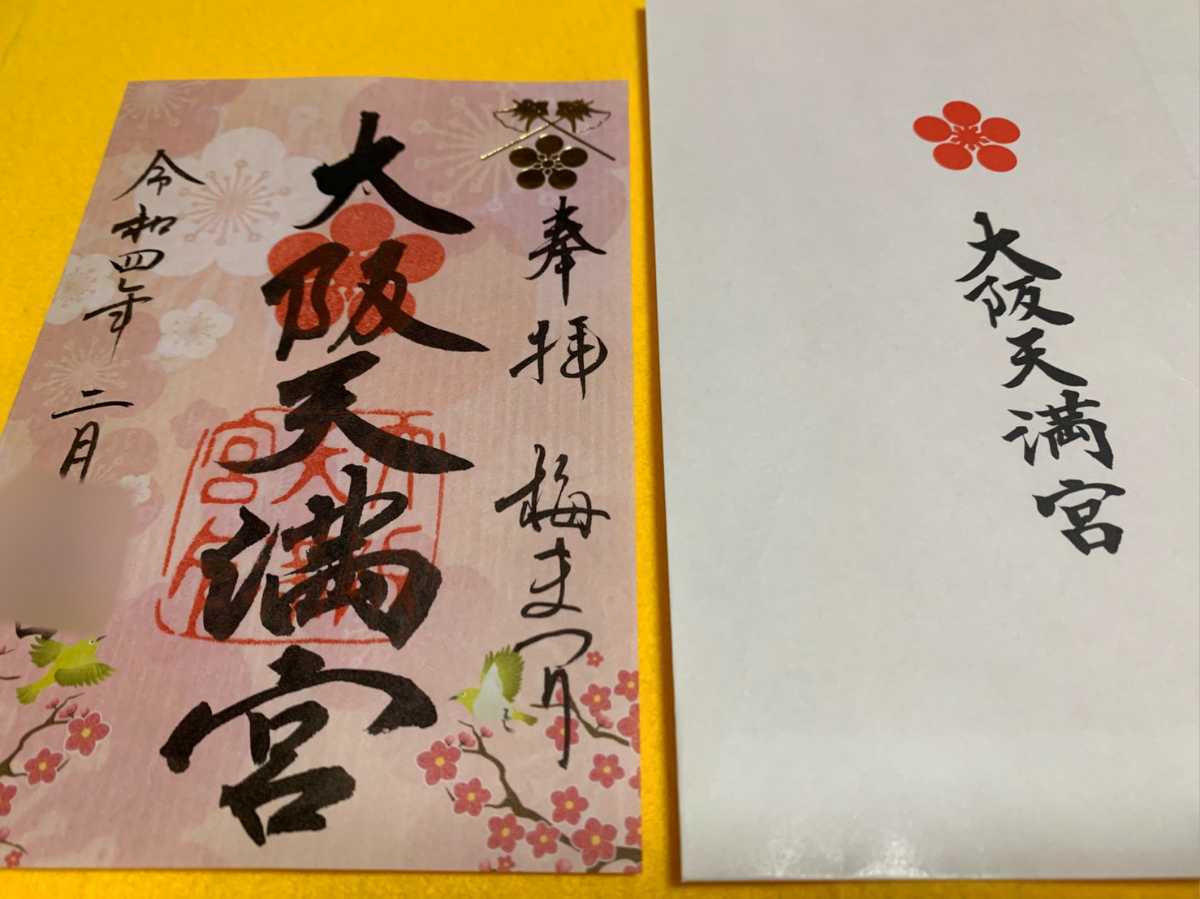 奉拝 梅まつり
大阪天満宮
令和四年 二月
大阪天満宮